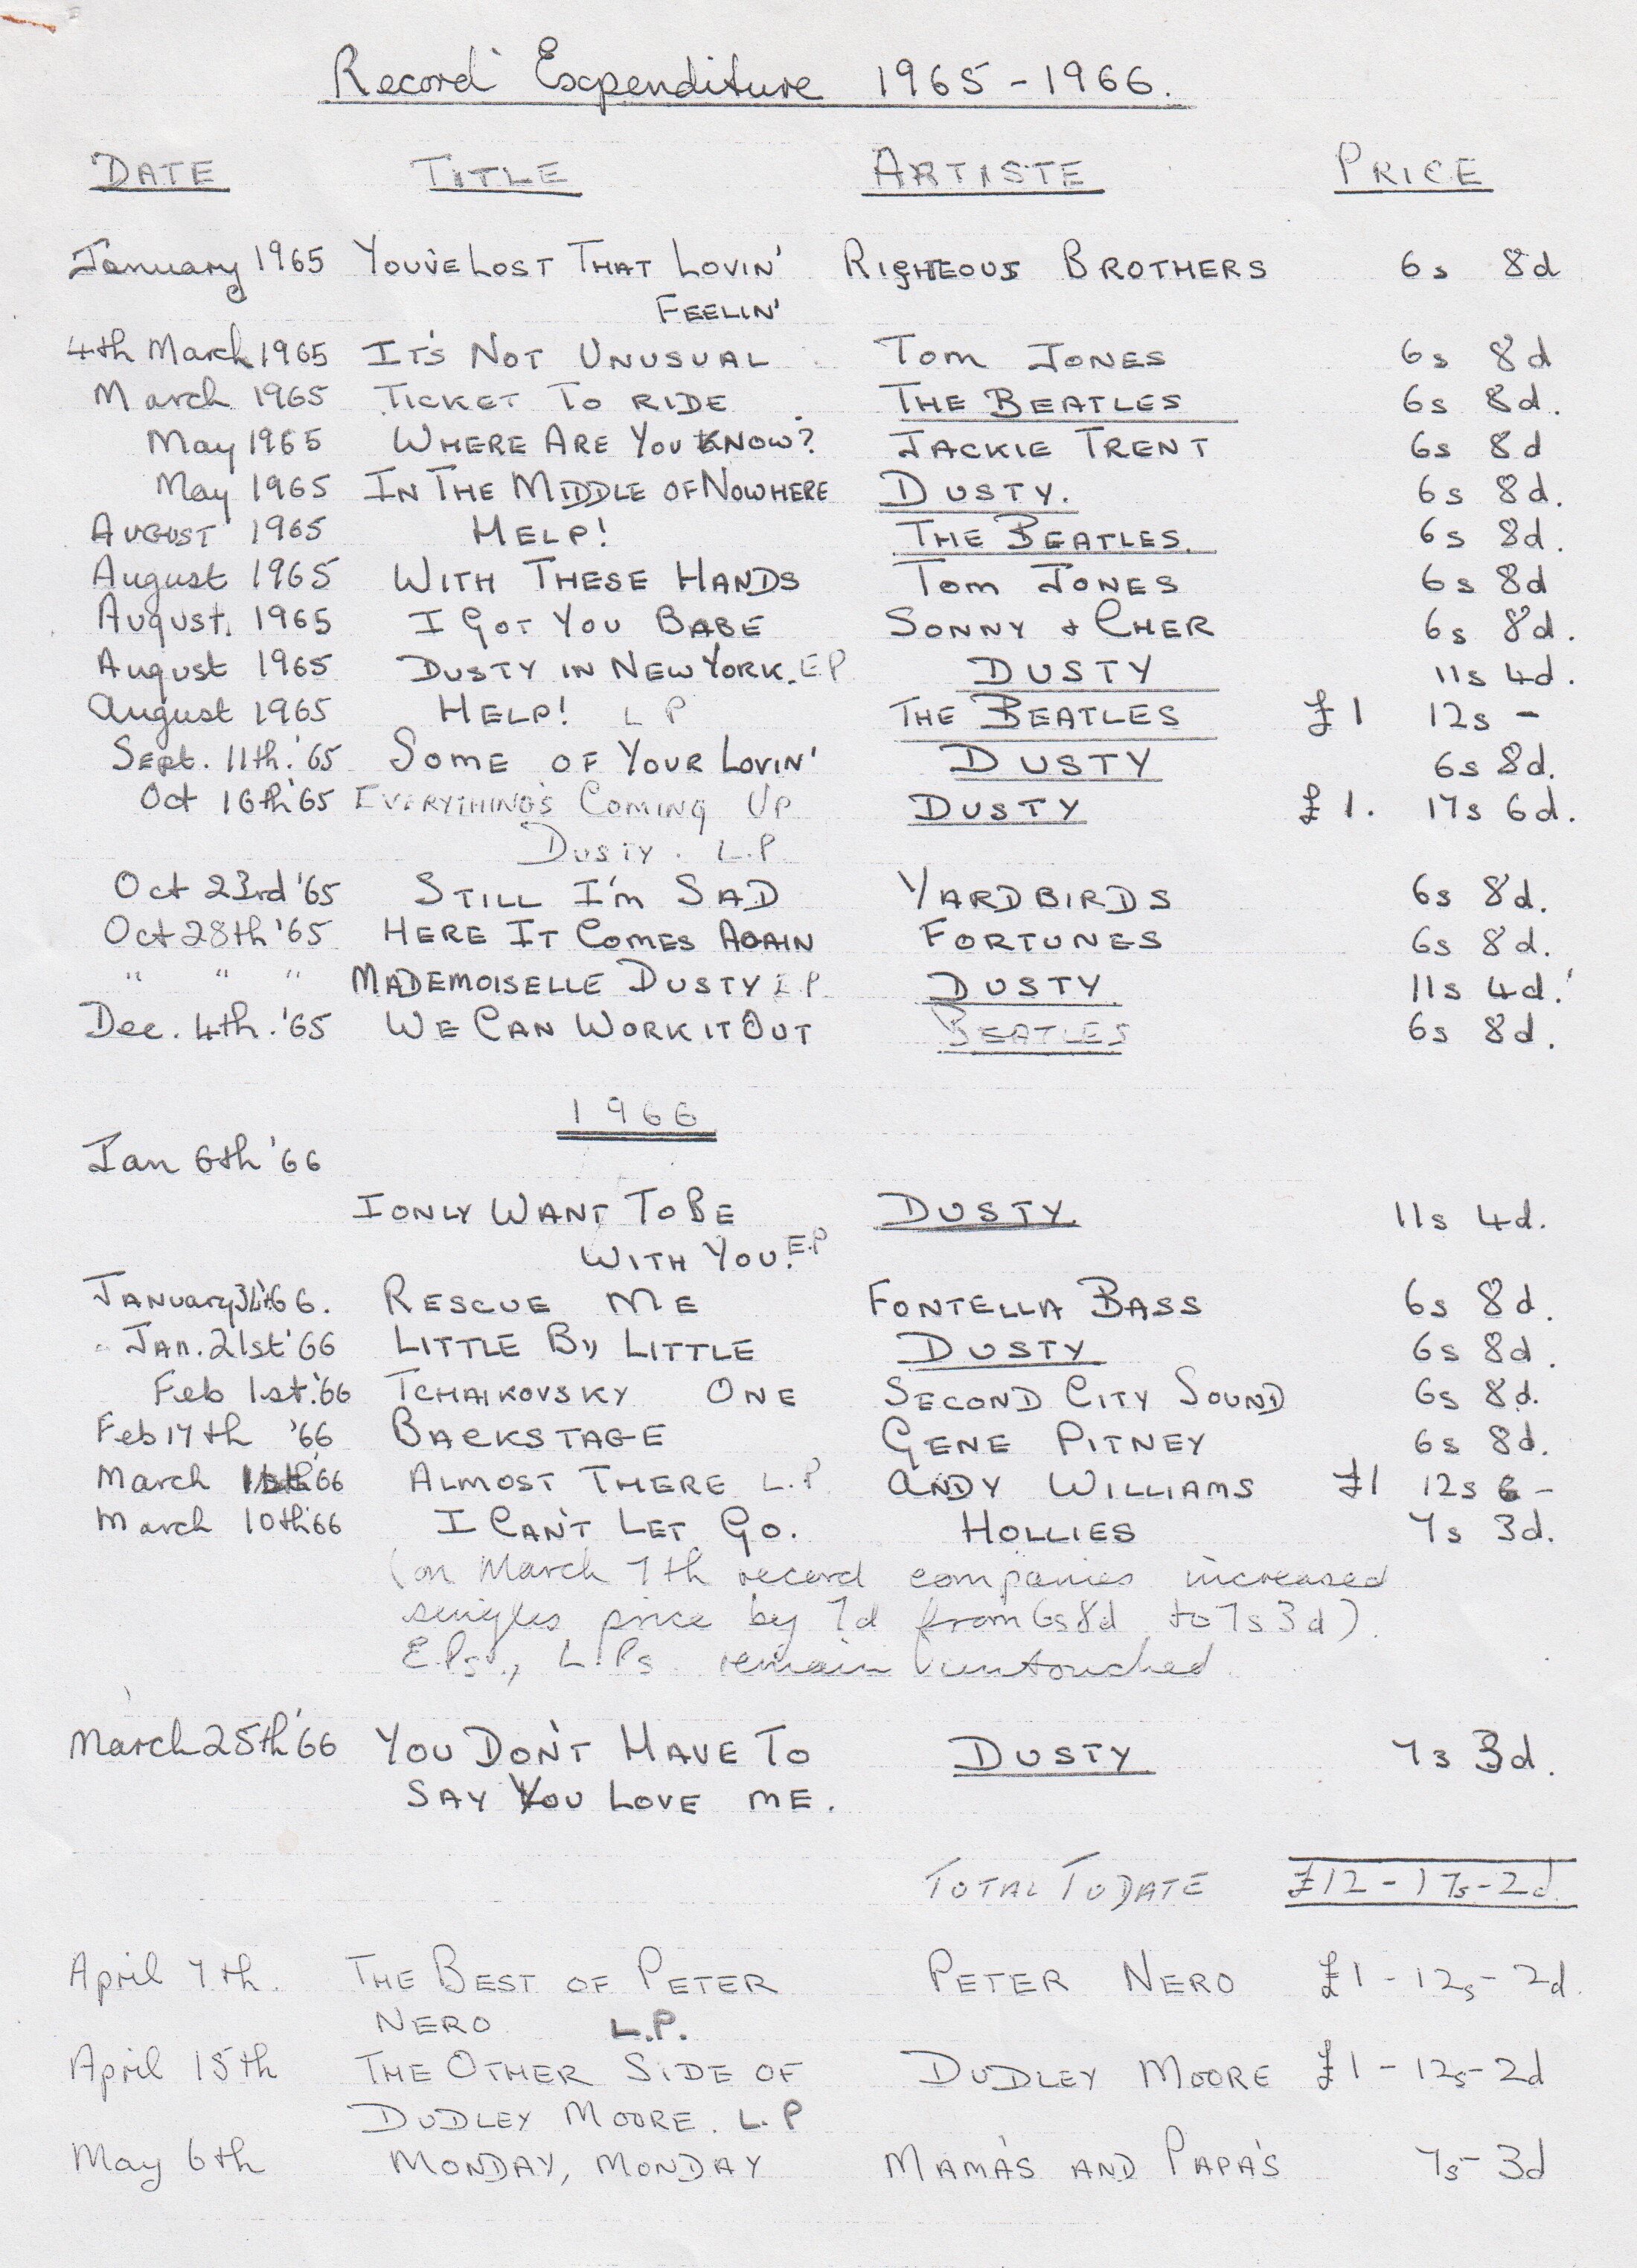 Record Expenditure 1965-1966.
DATE TITLE ARTISTE PRICE
January 1965 YOU'VE LOST THAT LOVIN' RIGHTEOUS BROTHERS 6s 8d
FEELIN'
4th March 1965 IT'S NOT UNUSUAL TOM JONES 6s 8d
March 1965 TICKET TO RIDE THE BEATLES 6s 8d.
May 1965 WHERE ARE YOU KNOW? JACKIE TRENT 6s 8d
May 1965 IN THE MIDDLE OF NOWHERE DUSTY. 6s 8d.
AUGUST 1965 HELP! THE BEATLES. 6s 8d.
August 1965 WITH THESE HANDS TOM JONES 6s 8d
August. 1965 I GOT YOU BABE SONNY + CHER 6s 8d.
August 1965 DUSTY IN NEW YORK. EP DUSTY 11s 4d.
August 1965 HELP! LP THE BEATLES £1 12s -
Sept. 11th. '65 SOME OF YOUR LOVIN' DUSTY 6s 8d.
Oct 16th '65 EVERYTHING'S COMING UP DUSTY £1. 17s 6d.
DUSTY. L.P.
Oct 23rd '65 STILL I'M SAD YARDBIRDS 6s 8d.
Oct 28th '65 HERE IT COMES AGAIN FORTUNES 6s 8d.
" " " MADEMOISELLE DUSTY E.P. DUSTY 11s 4d.
Dec. 4th. '65 WE CAN WORK IT OUT BEATLES 6s 8d.
1966
Jan 6th '66
I ONLY WANT TO BE DUSTY. 11s 4d.
WITH YOU. E.P
January '66. RESCUE ME FONTELLA BASS 6s 8d.
Jan. 21st '66 LITTLE BY LITTLE DUSTY 6s 8d.
Feb 1st. '66 TCHAIKOVSKY ONE SECOND CITY SOUND 6s 8d.
Feb 17th '66 BACKSTAGE GENE PITNEY 6s 8d.
March '66 ALMOST THERE L.P ANDY WILLIAMS £1 12s -
March 10th '66 I CAN'T LET GO. HOLLIES 7s 3d.
(on March 7th record companies increased
singles price by 7d from 6s8d to 7s3d).
E.Ps., L.Ps. remain untouched.
March 25th '66 YOU DON'T HAVE TO DUSTY 7s 3d.
SAY YOU LOVE ME.
TOTAL TO DATE £12-17s-2d.
April 7th. THE BEST OF PETER PETER NERO £1-12s-2d.
NERO L.P.
April 15th THE OTHER SIDE OF DUDLEY MOORE £1-12s-2d
DUDLEY MOORE. L.P
May 6th MONDAY, MONDAY MAMA'S AND PAPA'S 7s-3d